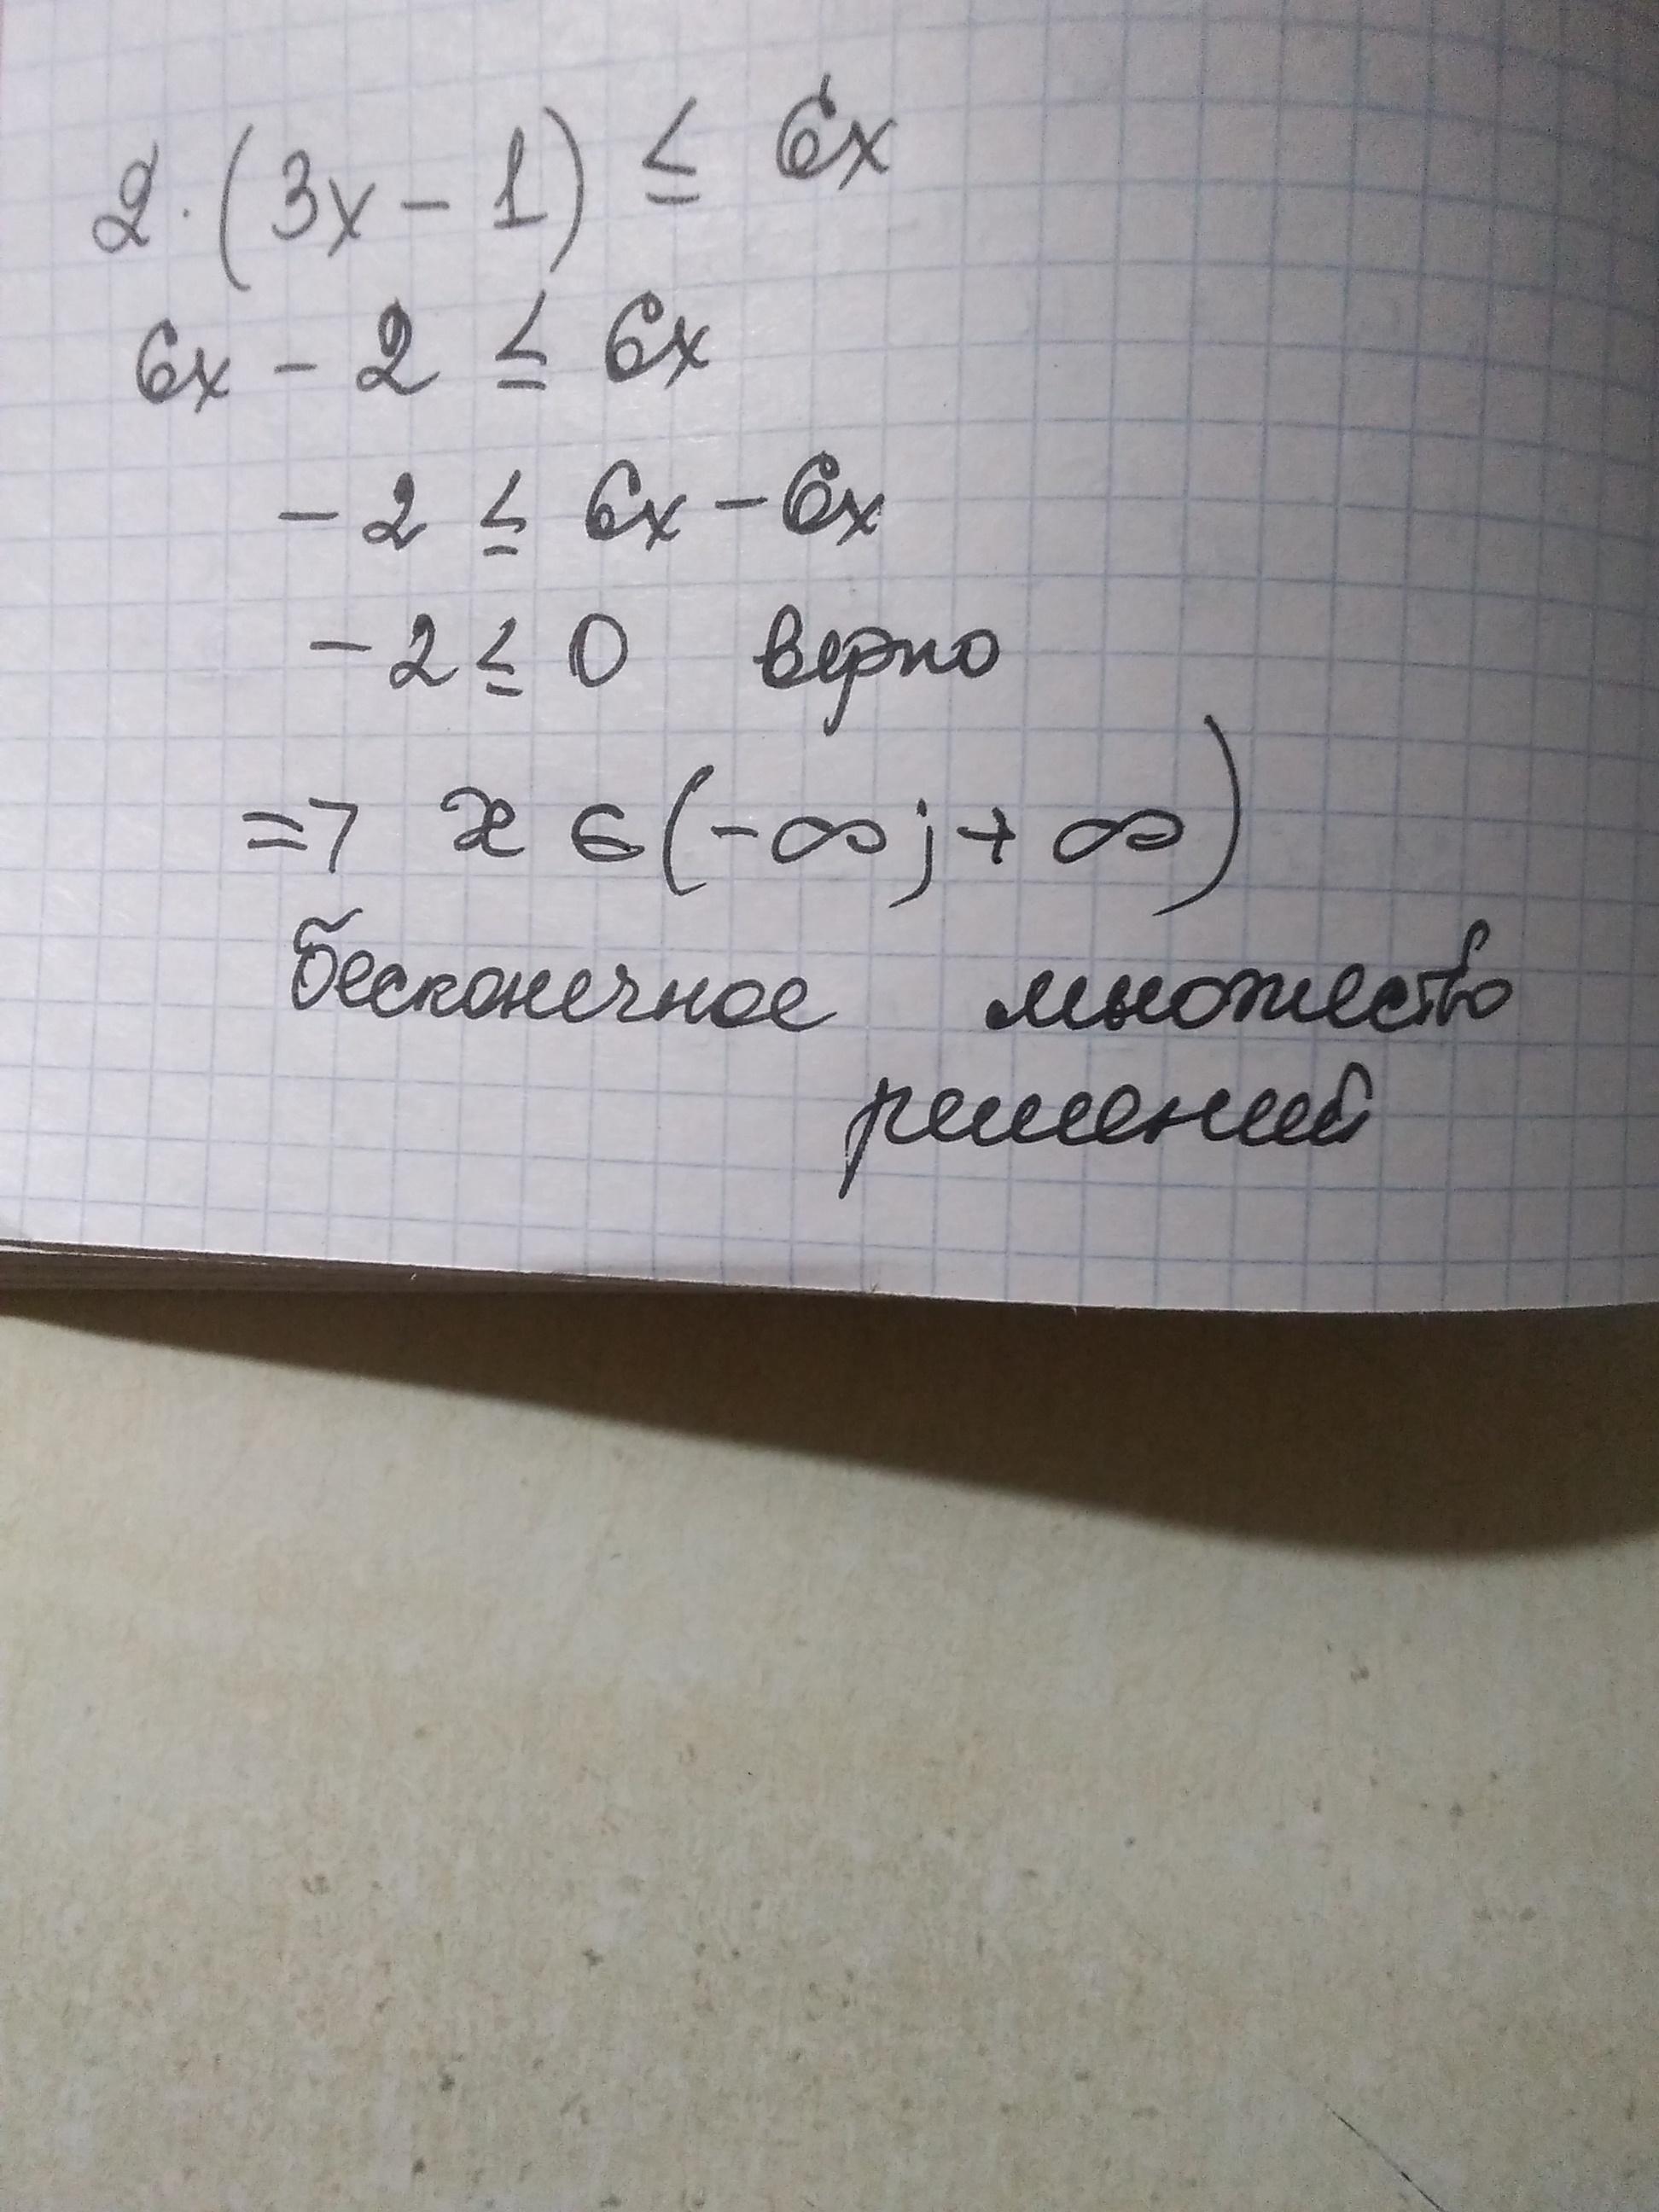 2·(3x-1) ≤ 6x
6x - 2 ≤ 6x
-2 ≤ 6x - 6x
-2 ≤ 0 верно
=> x ∈ (-∞; +∞)
бесконечное множество
решений